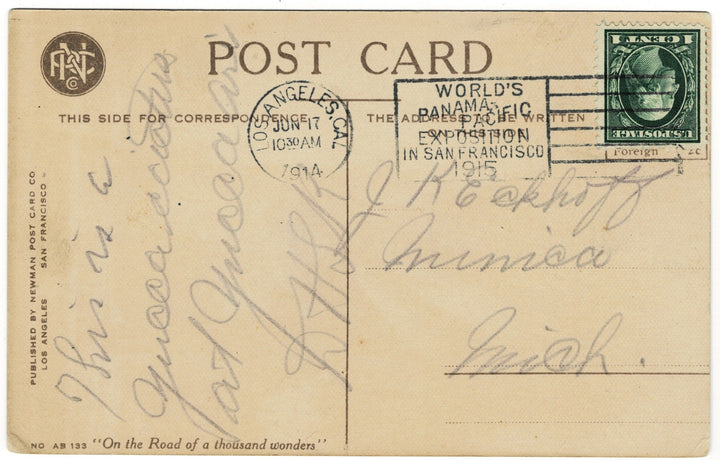 POST CARD
THIS SIDE FOR CORRESPONDENCE
THE ADDRESS TO BE WRITTEN
ON THIS SIDE
LOS ANGELES, CAL.
JUN 17
10 30 AM
1914
WORLD'S
PANAMA-PACIFIC
EXPOSITION
IN SAN FRANCISCO
1915
U.S. POSTAGE
1 CENT 1
Foreign 2c
PUBLISHED BY NEWMAN POST CARD CO.
LOS ANGELES SAN FRANCISCO
This is a
at
J K Eckhoff
Munica
Mich.
NO AB 133 "On the Road of a thousand wonders"